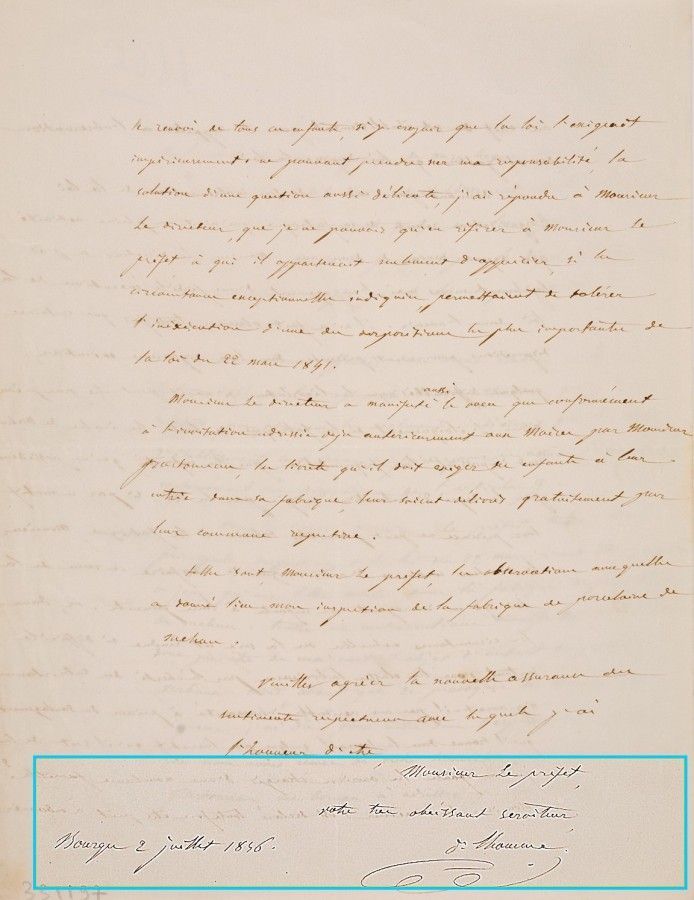 le renvoi de tous ces enfants, si je croyais que la loi l'exigeât
impérieusement. ne pouvant prendre sur ma responsabilité, la
solution d'une question aussi délicate, j'ai répondu à Monsieur
Le directeur, que je ne pouvais qu'en référer à Monsieur Le
préfet à qui il appartenait seulement d'apprécier, si les
circonstances exceptionnelles indiquées permettaient de tolérer
l'inexécution d'une des dispositions les plus importantes de
la loi du 22 mars 1841.
Monsieur Le directeur a manifesté aussi le voeu que conformément
à l'invitation adressée déjà antérieurement aux Maires par Monsieur
les livrets qu'il doit exiger des enfants à leur
entrée dans sa fabrique, leur soient délivrés gratuitement par
leur commune respective.
telles sont, Monsieur Le préfet, les observations auxquelles
a donné lieu mon inspection de la fabrique de porcelaine de
mehun.
Veuillez agréer la nouvelle assurance des
sentiments respectueux avec lesquels j'ai
l'honneur d'être
Monsieur Le préfet,
votre très obéissant serviteur
Bourges 2 juillet 1856.
331137